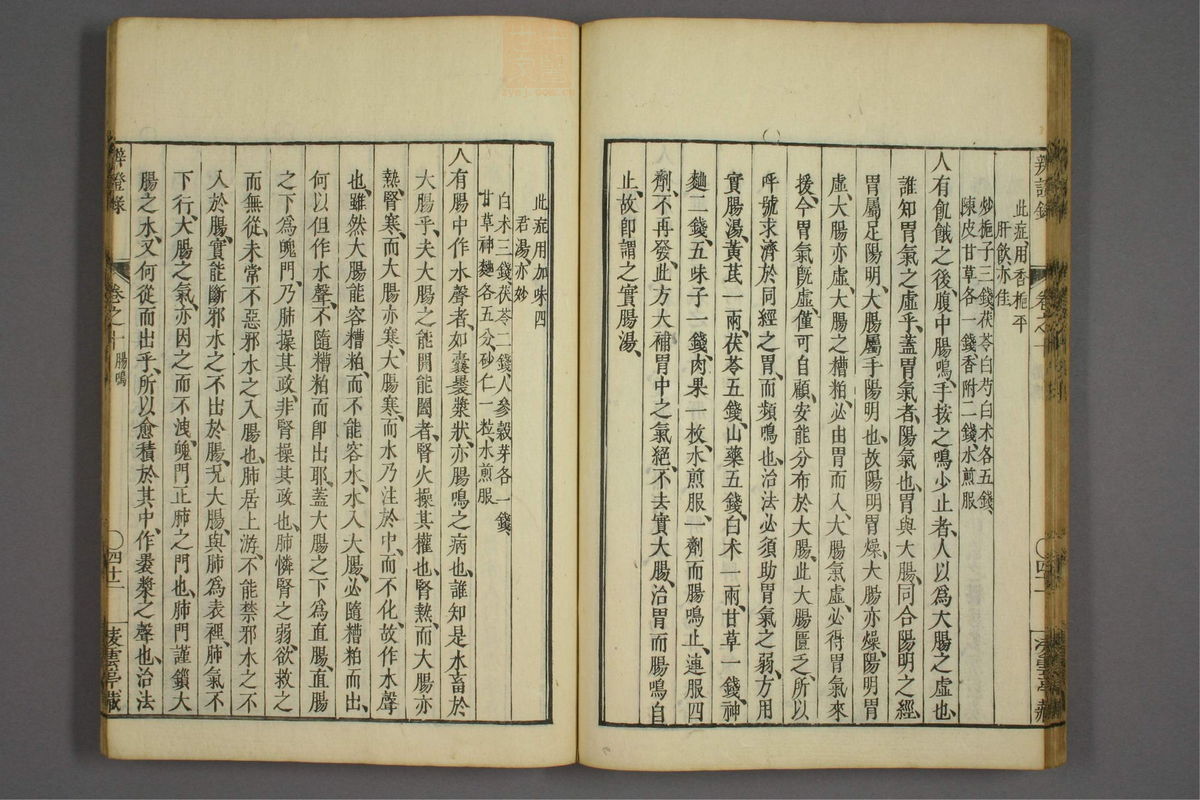 此症用香梔平
肝飲亦佳
炒梔子三錢茯苓白芍白朮各五錢、
陳皮甘草各一錢香附二錢、水煎服
人有飢餓之後、腹中腸鳴、手按之鳴少止者、人以為大腸之虛也、
誰知胃氣之虛乎、蓋胃氣者、陽氣也、胃與大腸、同合陽明之經、
胃屬足陽明、大腸屬手陽明也、故陽明胃燥、大腸亦燥、陽明胃
虛、大腸亦虛、大腸之糟粕、必由胃而入、大腸氣虛、必得胃氣來
援、今胃氣既虛、僅可自顧、安能分布於大腸、此大腸匱乏、所以
呼號求濟於同經之胃、而頻鳴也、治法必須助胃氣之弱、方用
實腸湯、黃芪一兩、茯苓五錢、山藥五錢、白朮一兩、甘草一錢、神
麯二錢、五味子一錢、肉果一枚、水煎服、一劑而腸鳴止、連服四
劑、不再發、此方大補胃中之氣絕、不去實大腸、治胃而腸鳴自
止、故即謂之實腸湯、
此症用加味四
君湯、亦妙
白朮三錢、茯苓二錢、人參穀芽各一錢、
甘草神麯各五分、砂仁一粒、水煎服
人有腸中作水聲者、如囊褁漿狀、亦腸鳴之病也、誰知是水畜於
大腸乎、夫大腸之能開能闔者、腎火操其權也、腎熱、而大腸亦
熱、腎寒、而大腸亦寒、大腸寒、而水乃注於中、而不化、故作水聲
也、雖然大腸能容糟粕、而不能容水、水入大腸、必隨糟粕而出、
何以但作水聲、不隨糟粕而即出耶、蓋大腸之下為直腸、直腸
之下為魄門、乃肺操其政、非腎操其政也、肺憐腎之弱、欲救之
而無從、未常不惡邪水之入腸也、肺居上游、不能禁邪水之不
入於腸、實能斷邪水之不出於腸、況大腸、與肺為表裡、肺氣不
下行、大腸之氣、亦因之而不洩、魄門正肺之門也、肺門謹鎖、大
腸之水、又何從而出乎、所以愈積於其中、作褁漿之聲也、治法
卷之十 腸鳴
四十二
凌雲亭藏